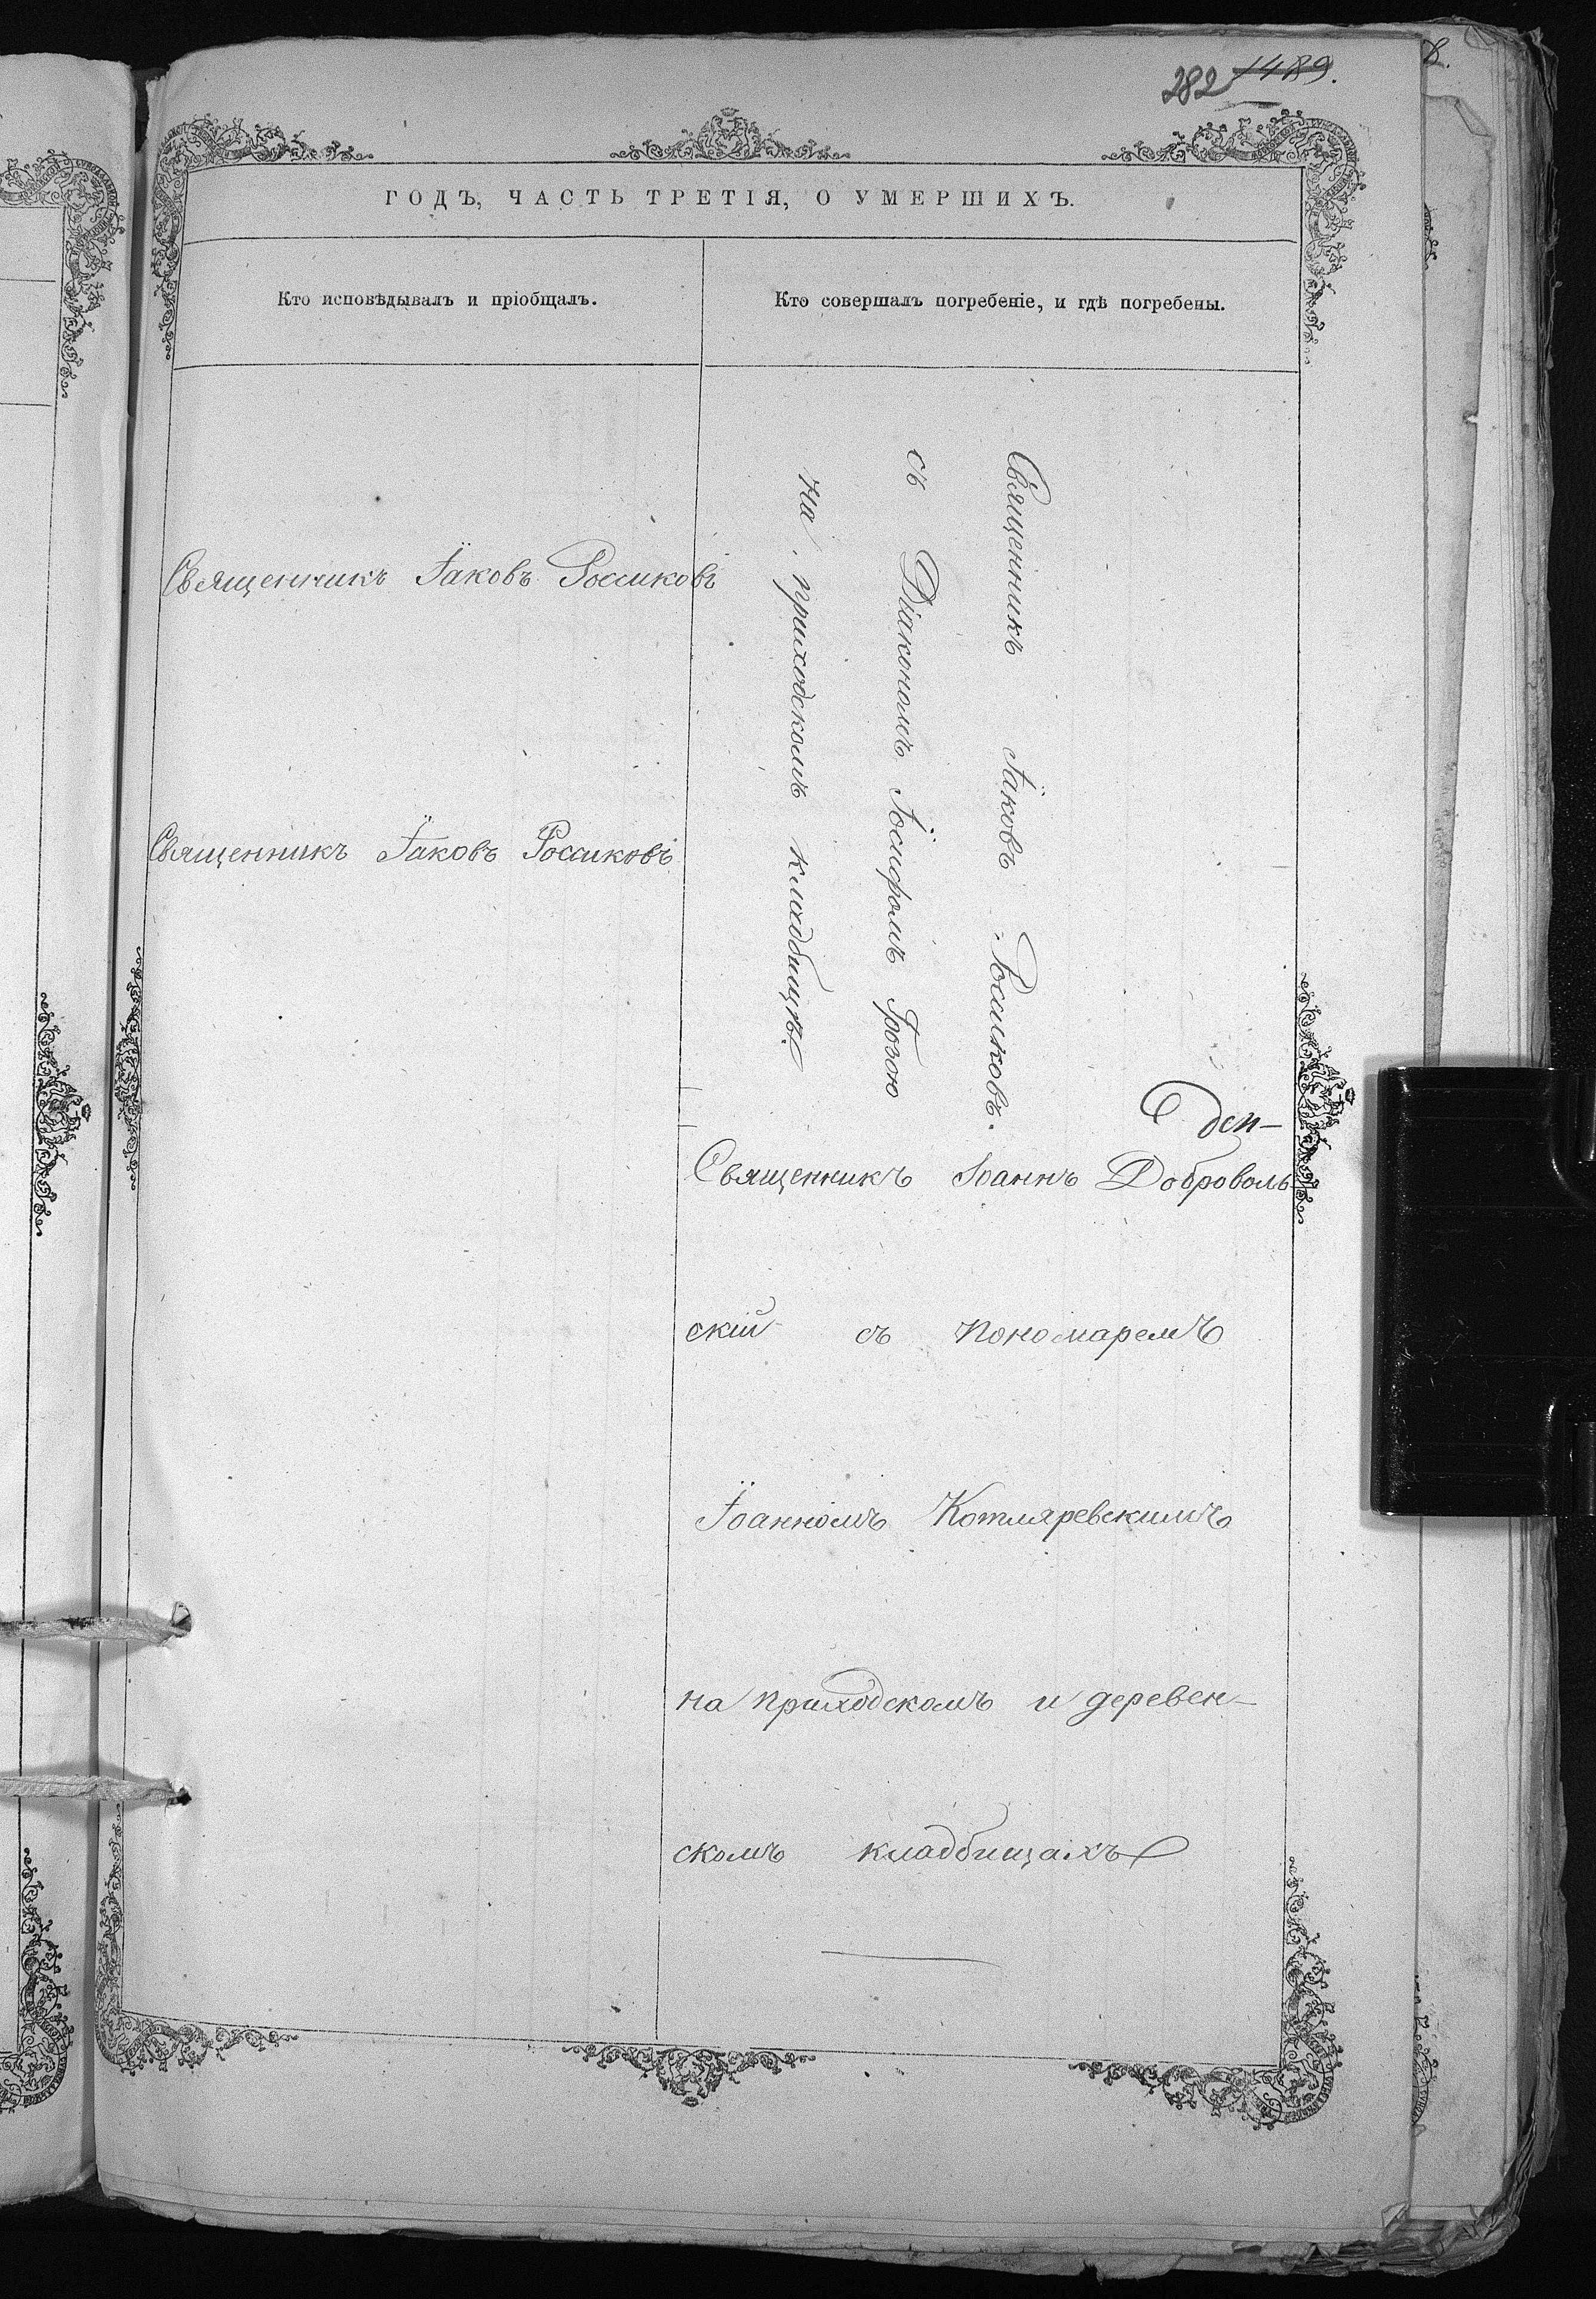 282 1489.
ГОДЪ, ЧАСТЬ ТРЕТІЯ, О УМЕРШИХЪ.
Кто исповѣдывалъ и пріобщалъ.
Кто совершалъ погребеніе, и гдѣ погребены.
Священникъ Іаковъ Россиковъ
Священникъ Іаковъ Россиковъ
Священникъ Іаковъ Россиковъ.
съ Діакономъ Іосифомъ Грозою
на приходскомъ кладбищѣ.
Священникъ Іоаннъ Доброволь
скій съ пономаремъ
Іоанномъ Котляревскимъ
на приходскомъ и деревен-
скомъ кладбищахъ